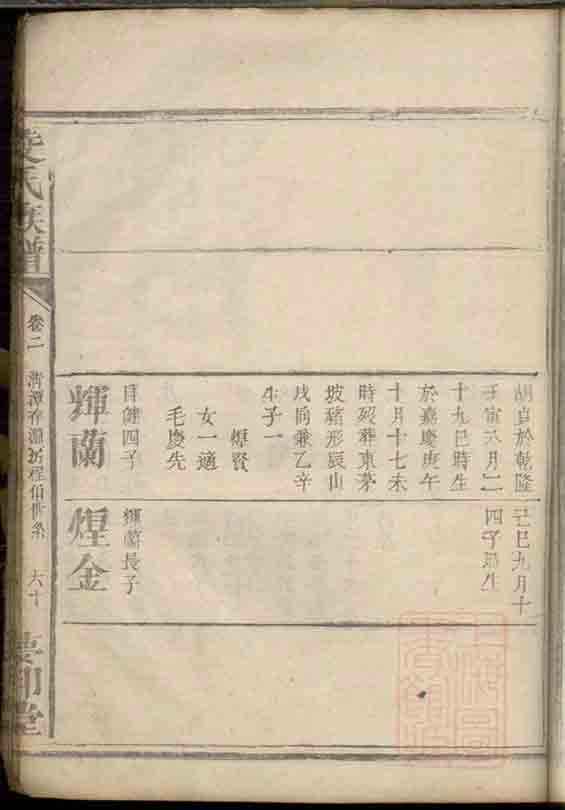 胡貞於乾隆
壬寅六月二
十九巳時生
於嘉慶庚午
十月十七未
時歿葬東茅
坡豬形辰山
戌向兼乙辛
生子一
煇賢
女一適
毛慶先
目健四子
輝蘭
己巳九月十
四子時生
輝蘭長子
煌金
氏族譜
卷二
六十
堂